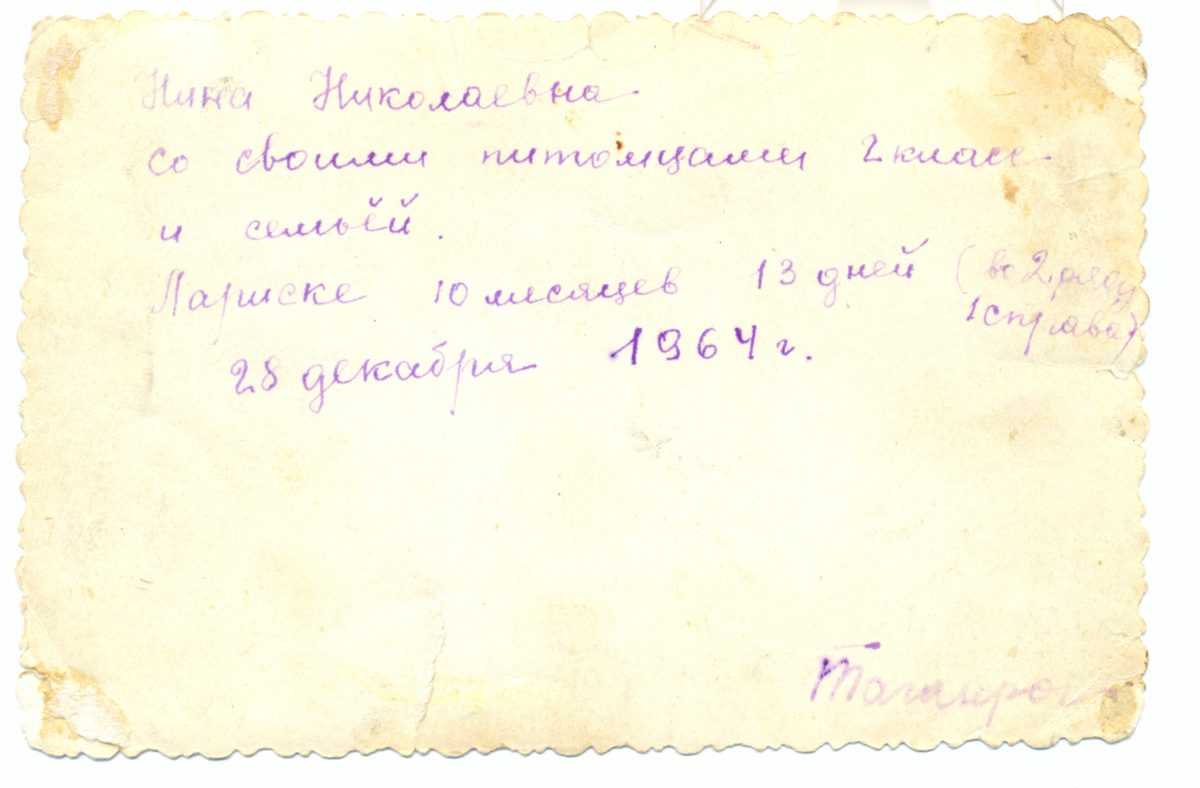 Нина Николаевна
со своими питомцами 2 класс
и семьёй.
Лариске 10 месяцев 13 дней (во 2 ряду
1 справа)
28 декабря 1964 г.
Таганрог